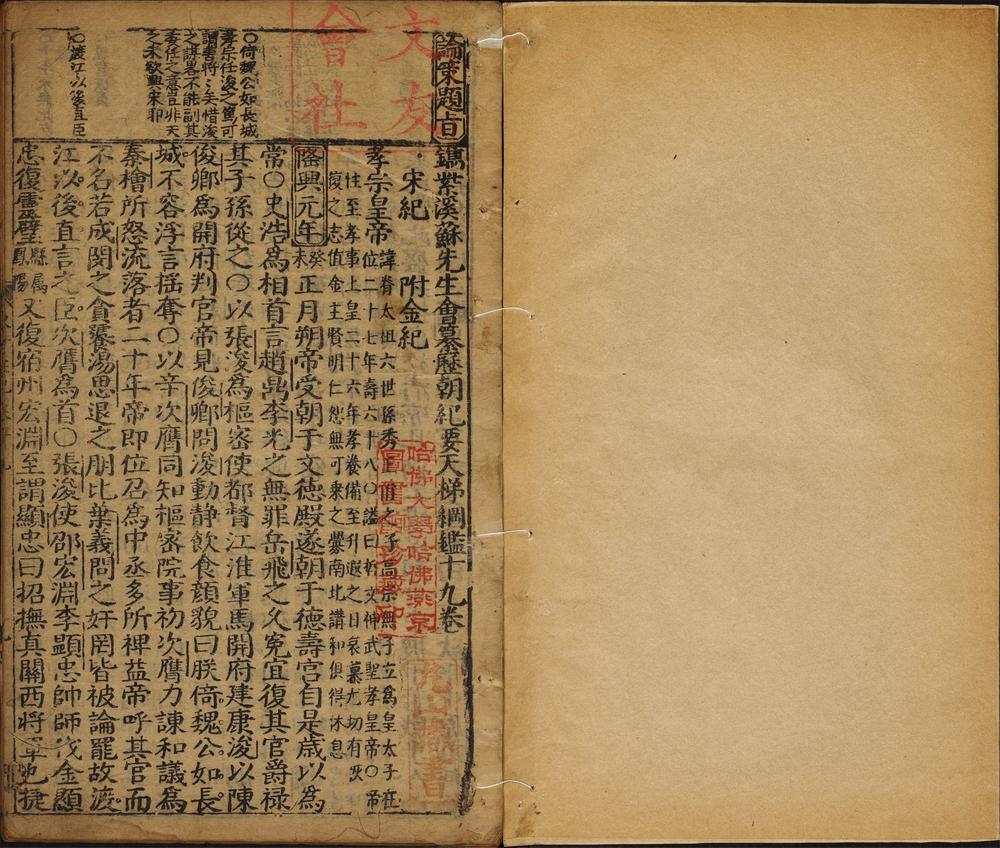 論策題旨
鐫紫溪蘇先生會纂歷朝紀要天梯綱鑑十九卷
宋紀　附金紀
孝宗皇帝
諱眘太祖六世孫秀王偁之子高宗無子立爲皇太子在
位二十七年壽六十八〇謚曰哲文神武聖孝皇帝〇帝
性至孝事上皇二十六年孝養備至升遐之日哀慕尤切有恢
復之志値金主賢明仁恕無可乘之釁南北講和俱得休息
隆興元年
癸
未
正月朔帝受朝于文德殿遂朝于德壽宮自是歲以爲
常〇史浩爲相首言趙鼎李光之無罪岳飛之久冤宜復其官爵祿
其子孫從之〇以張浚爲樞密使都督江淮軍馬開府建康浚以陳
俊卿爲開府判官帝見俊卿問浚動静飲食顏貌曰朕倚魏公如長
城不容浮言搖奪〇以辛次膺同知樞密院事初次膺力諫和議爲
秦檜所怒流落者二十年帝即位召爲中丞多所裨益帝呼其官而
不名若成閔之貪饕湯思退之朋比葉義問之奸罔皆被論罷故渡
江以後直言之臣次膺爲首〇張浚使邵宏淵李顯忠帥師伐金顯
忠復靈璧
縣屬
鳳陽
又復宿州宏淵至謂顯忠曰招撫真關西將軍也捷
〇倚魏公如長城
孝宗任浚之篤可
謂書將矣惜浚
之謀畧不能副其
委任之意豈非天
之未欲興宋耶
〇渡江以後直臣
文友
會社
哈佛大學哈佛燕京
圖書館珍藏印